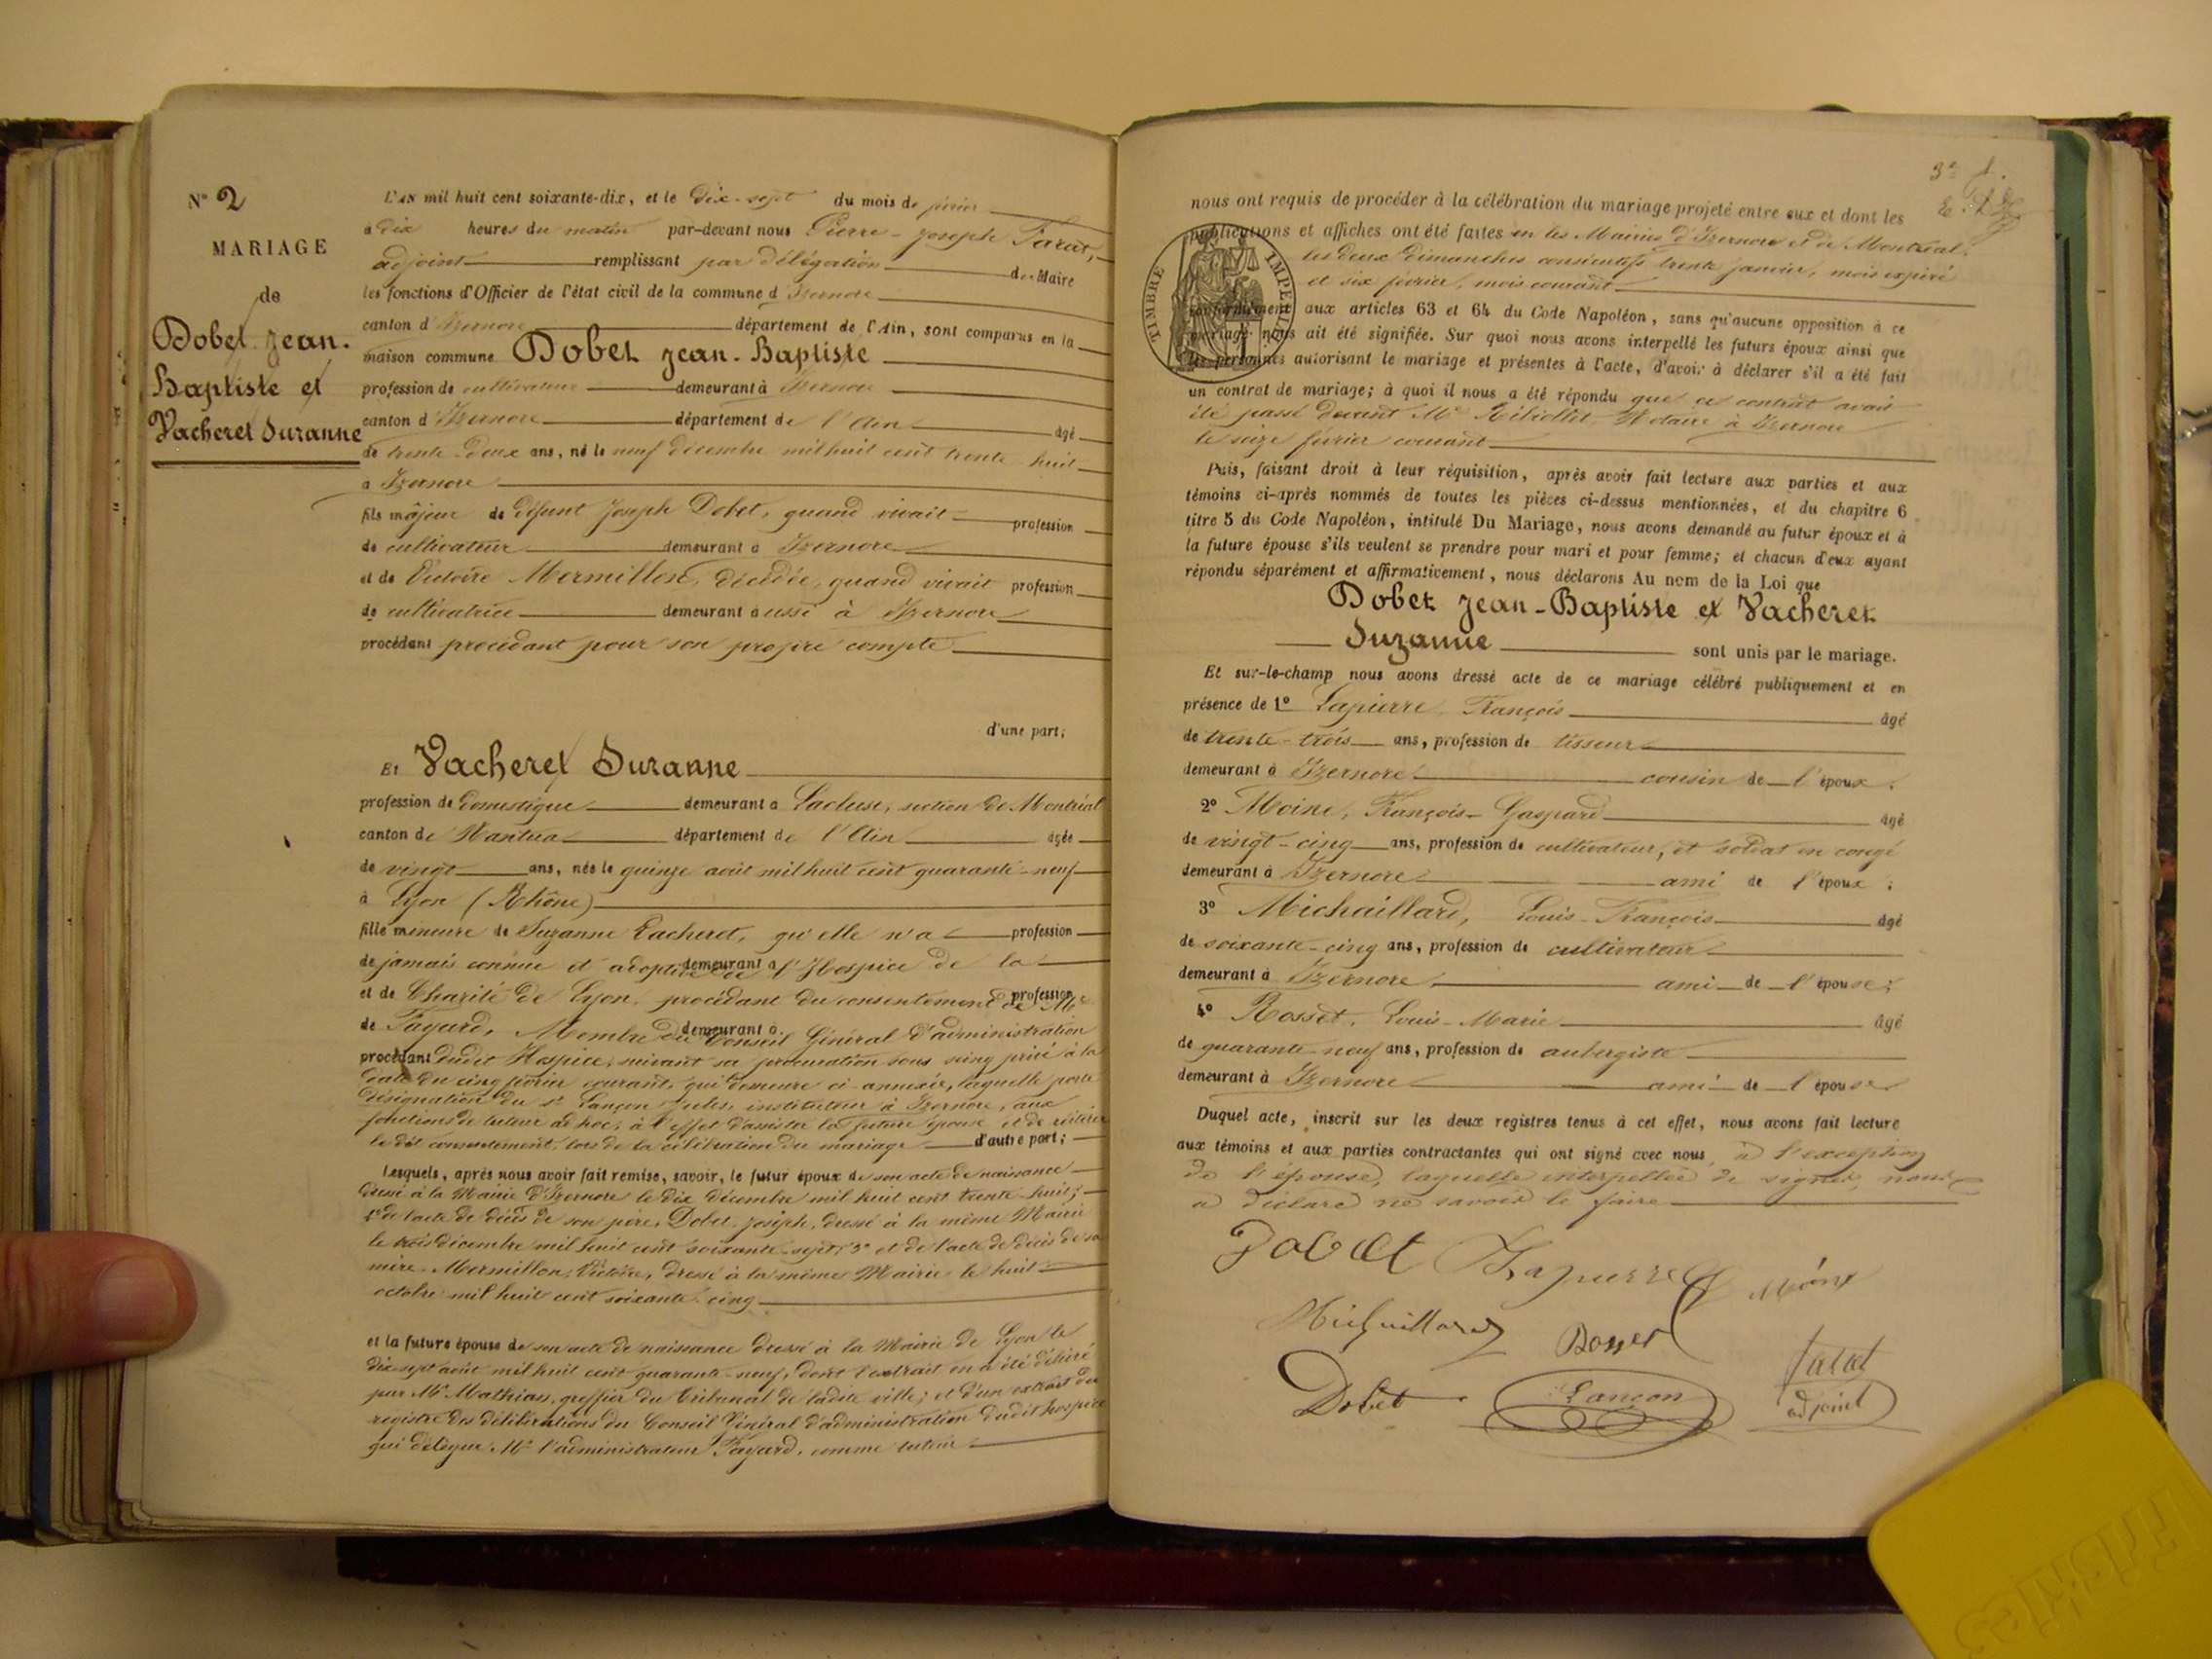 N° 2
MARIAGE
de
Dobet Jean-
Baptiste et
Vacheret Suzanne
L'AN mil huit cent soixante-dix, et le dix-sept du mois de février
à dix heures du matin par-devant nous Pierre-Joseph Tarat,
adjoint remplissant par délégation du Maire
les fonctions d'Officier de l'état civil de la commune d'Izernore
canton d'Izernore département de l'Ain, sont comparus en la
maison commune Dobet Jean-Baptiste
profession de cultivateur demeurant à Izernore
canton d'Izernore département de l'Ain âgé
de trente-deux ans, né le neuf décembre mil huit cent trente-huit
à Izernore
fils majeur de défunt Joseph Dobet, quand vivait profession
de cultivateur demeurant à Izernore
et de Victoire Mermillon, décédée, quand vivait profession
de cultivatrice demeurant aussi à Izernore
procédant procédant pour son propre compte
d'une part;
Et Vacheret Suzanne
profession de domestique demeurant à Lacluse, section de Montréal
canton de Nantua département de l'Ain âgée
de vingt ans, née le quinze août mil huit cent quarante-neuf
à Lyon (Rhône)
fille mineure de Suzanne Vacheret, qu'elle n'a profession
de jamais connue et adoptive de demeurant à l'Hospice de la
et de Charité de Lyon, procédant du consentement de Mr profession
de Fayard, Membre du demeurant à Conseil Général d'administration
procédant dudit Hospice, suivant sa procuration sous seing privé à la
date du cinq février courant, qui demeure ci-annexée, laquelle porte
désignation du sr Lançon Jules, instituteur à Izernore, aux
fonctions de tuteur ad hoc, à l'effet d'assister la future épouse et de réitérer
le dit consentement, lors de la célébration du mariage d'autre part;
Lesquels, après nous avoir fait remise, savoir, le futur époux de son acte de naissance
dressé à la Mairie d'Izernore le dix décembre mil huit cent trente-huit;
2° de l'acte de décès de son père, Dobet Joseph, dressé à la même Mairie
le trois décembre mil huit cent soixante-sept; 3° et de l'acte de décès de sa
mère Mermillon, Victoire, dressé à la même Mairie le huit
octobre mil huit cent soixante-cinq
et la future épouse de son acte de naissance dressé à la Mairie de Lyon le
dix-sept août mil huit cent quarante-neuf, dont l'extrait en a été délivré
par Mr Mathian, greffier du Tribunal de ladite ville; et d'un extrait du
registre des délibérations du Conseil Général d'administration dudit hospice
qui délègue Mr l'administrateur Fayard, comme tuteur
nous ont requis de procéder à la célébration du mariage projeté entre eux et dont les
publications et affiches ont été faites en les Mairies d'Izernore et de Montréal,
les deux dimanches consécutifs trente janvier, mois expiré
et six février, mois courant
TIMBRE IMPERIAL
conformément aux articles 63 et 64 du Code Napoléon, sans qu'aucune opposition à ce
mariage nous ait été signifiée. Sur quoi nous avons interpellé les futurs époux ainsi que
les personnes autorisant le mariage et présentes à l'acte, d'avoir à déclarer s'il a été fait
un contrat de mariage; à quoi il nous a été répondu que ce contrat avait
été passé devant Me Notaire à Izernore
le seize février courant
Puis, faisant droit à leur réquisition, après avoir fait lecture aux parties et aux
témoins ci-après nommés de toutes les pièces ci-dessus mentionnées, et du chapitre 6
titre 5 du Code Napoléon, intitulé Du Mariage, nous avons demandé au futur époux et à
la future épouse s'ils veulent se prendre pour mari et pour femme; et chacun d'eux ayant
répondu séparément et affirmativement, nous déclarons Au nom de la Loi que
Dobet Jean-Baptiste et Vacheret
Suzanne sont unis par le mariage.
Et sur-le-champ nous avons dressé acte de ce mariage célébré publiquement et en
présence de 1° Lapierre François âgé
de trente-trois ans, profession de tisseur
demeurant à Izernore cousin de l'époux.
2° Moine, François-Gaspard âgé
de vingt-cinq ans, profession de cultivateur, et soldat en congé
demeurant à Izernore ami de l'époux;
3° Michaillard, Louis-François âgé
de soixante-cinq ans, profession de cultivateur
demeurant à Izernore, ami de l'épouse;
4° Rosset, Louis-Marie âgé
de quarante-neuf ans, profession de aubergiste
demeurant à Izernore ami de l'épouse
Duquel acte, inscrit sur les deux registres tenus à cet effet, nous avons fait lecture
aux témoins et aux parties contractantes qui ont signé avec nous, à l'exception
de l'épouse, laquelle interpellée de signer, nous
a déclaré ne savoir le faire
Dobet Lapierre Moine
Michaillard Rosset
Dobet Lançon Tarat
adjoint